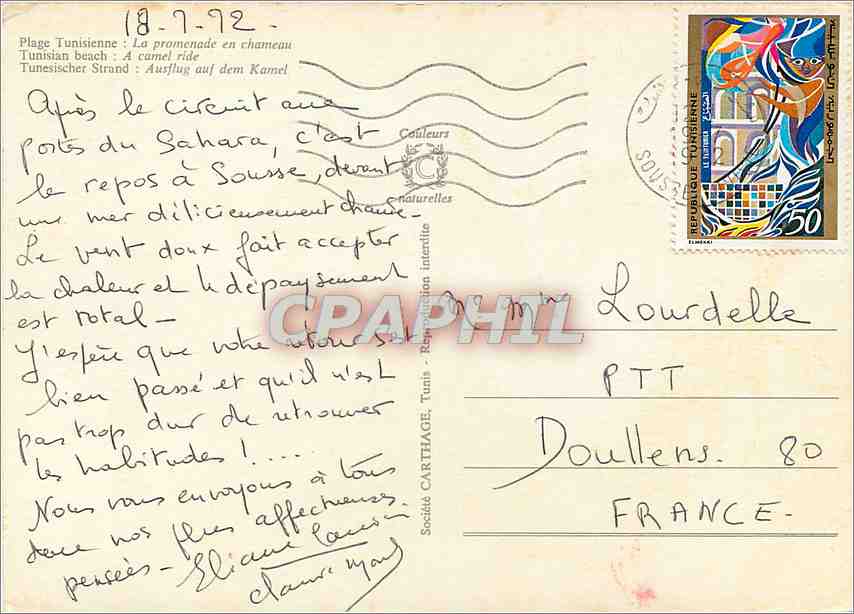 18-7-72-
Plage Tunisienne : La promenade en chameau
Tunisian beach : A camel ride
Tunesischer Strand : Ausflug auf dem Kamel
Après le circuit aux
portes du Sahara, c'est
le repos à Sousse, devant
une mer délicieusement chaude-
Le vent doux fait accepter
la chaleur et le dépaysement
est total-
J'espère que votre retour s'est
bien passé et qu'il n'est
pas trop dur de retrouver
les habitudes ! ....
Nous vous envoyons à tous
deux nos plus affectueuses
pensées- Eliane
Couleurs
C
naturelles
Société CARTHAGE, Tunis - Reproduction interdite
CPAPHIL
SOUS
REPUBLIQUE TUNISIENNE
LE TEINTURIER
50
ELMEKKI
Mr Mme Lourdelle
PTT
Doullens. 80
FRANCE-